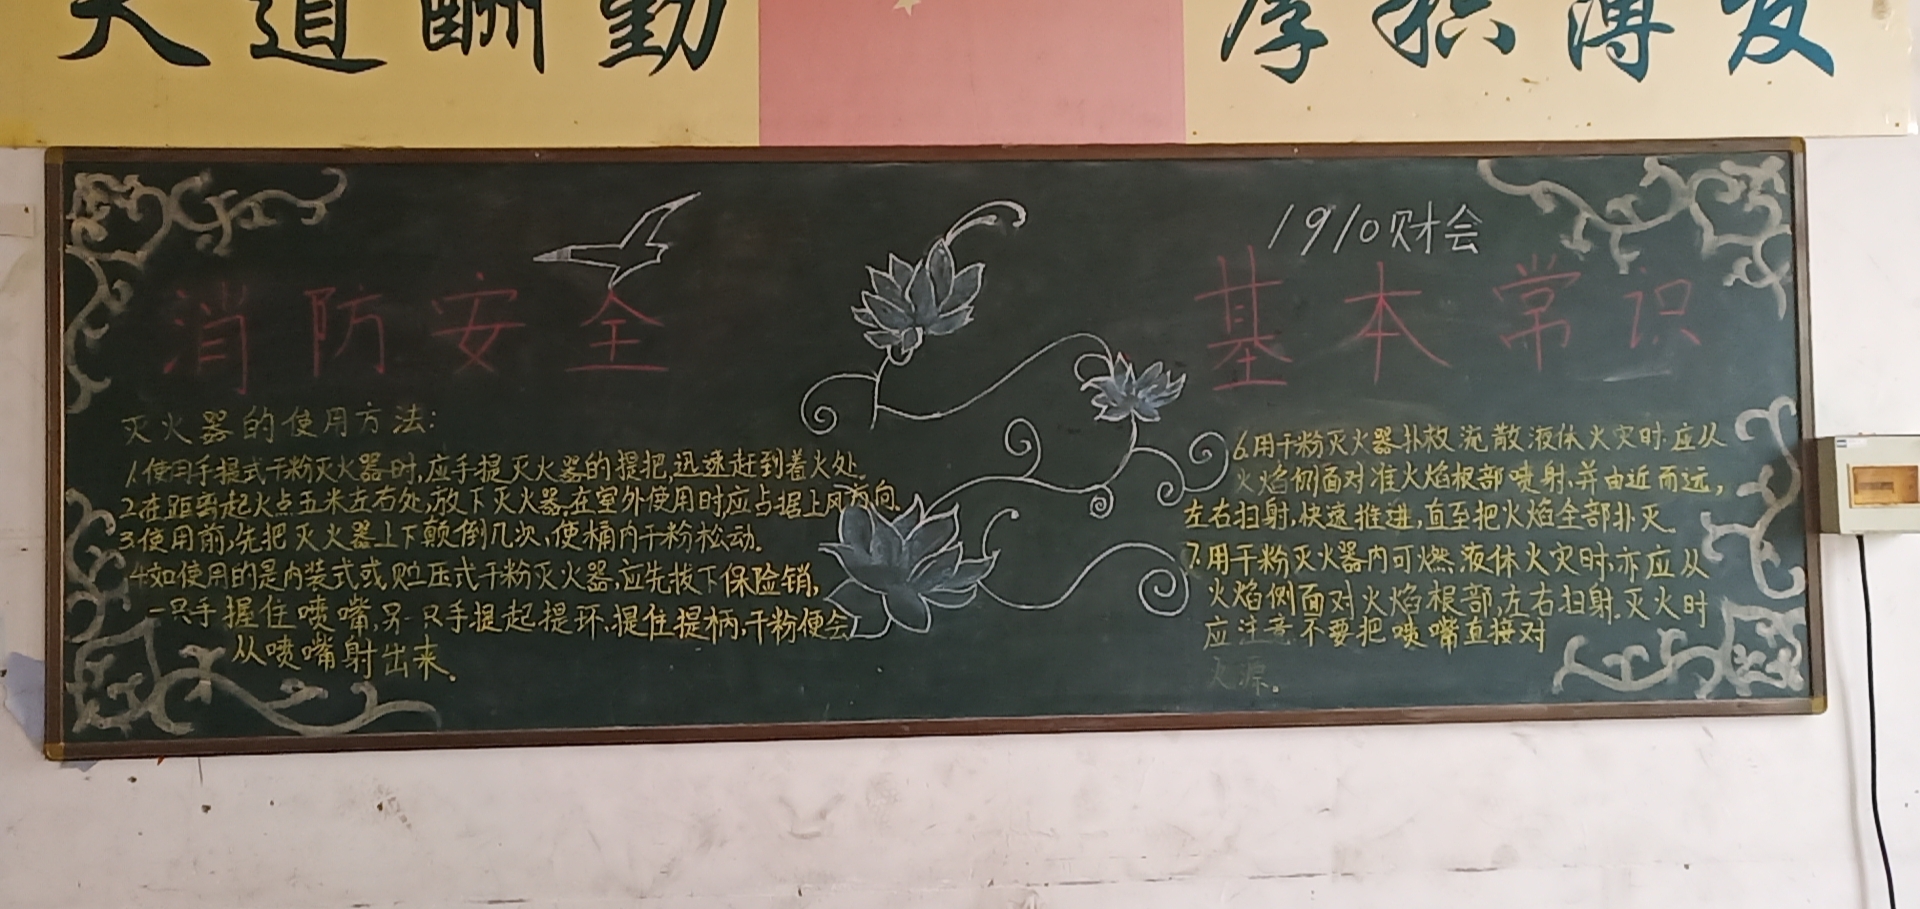 天道酬勤
厚积薄发
1910财会
消防安全
基本常识
灭火器的使用方法:
1.使用手提式干粉灭火器时,应手提灭火器的提把,迅速赶到着火处。
2.在距离起火点五米左右处,放下灭火器.在室外使用时应占据上风方向.
3.使用前,先把灭火器上下颠倒几次,使桶内干粉松动.
4.如使用的是内装式或贮压式干粉灭火器,应先拔下保险销,
一只手握住喷嘴,另一只手提起提环,提住提柄,干粉便会
从喷嘴射出来.
6.用干粉灭火器扑救流散液体火灾时.应从
火焰侧面对准火焰根部喷射.并由近而远,
左右扫射,快速推进,直至把火焰全部扑灭.
7.用干粉灭火器内可燃液体火灾时,亦应从
火焰侧面对火焰根部,左右扫射.灭火时
应注意不要把喷嘴直接对
火源.